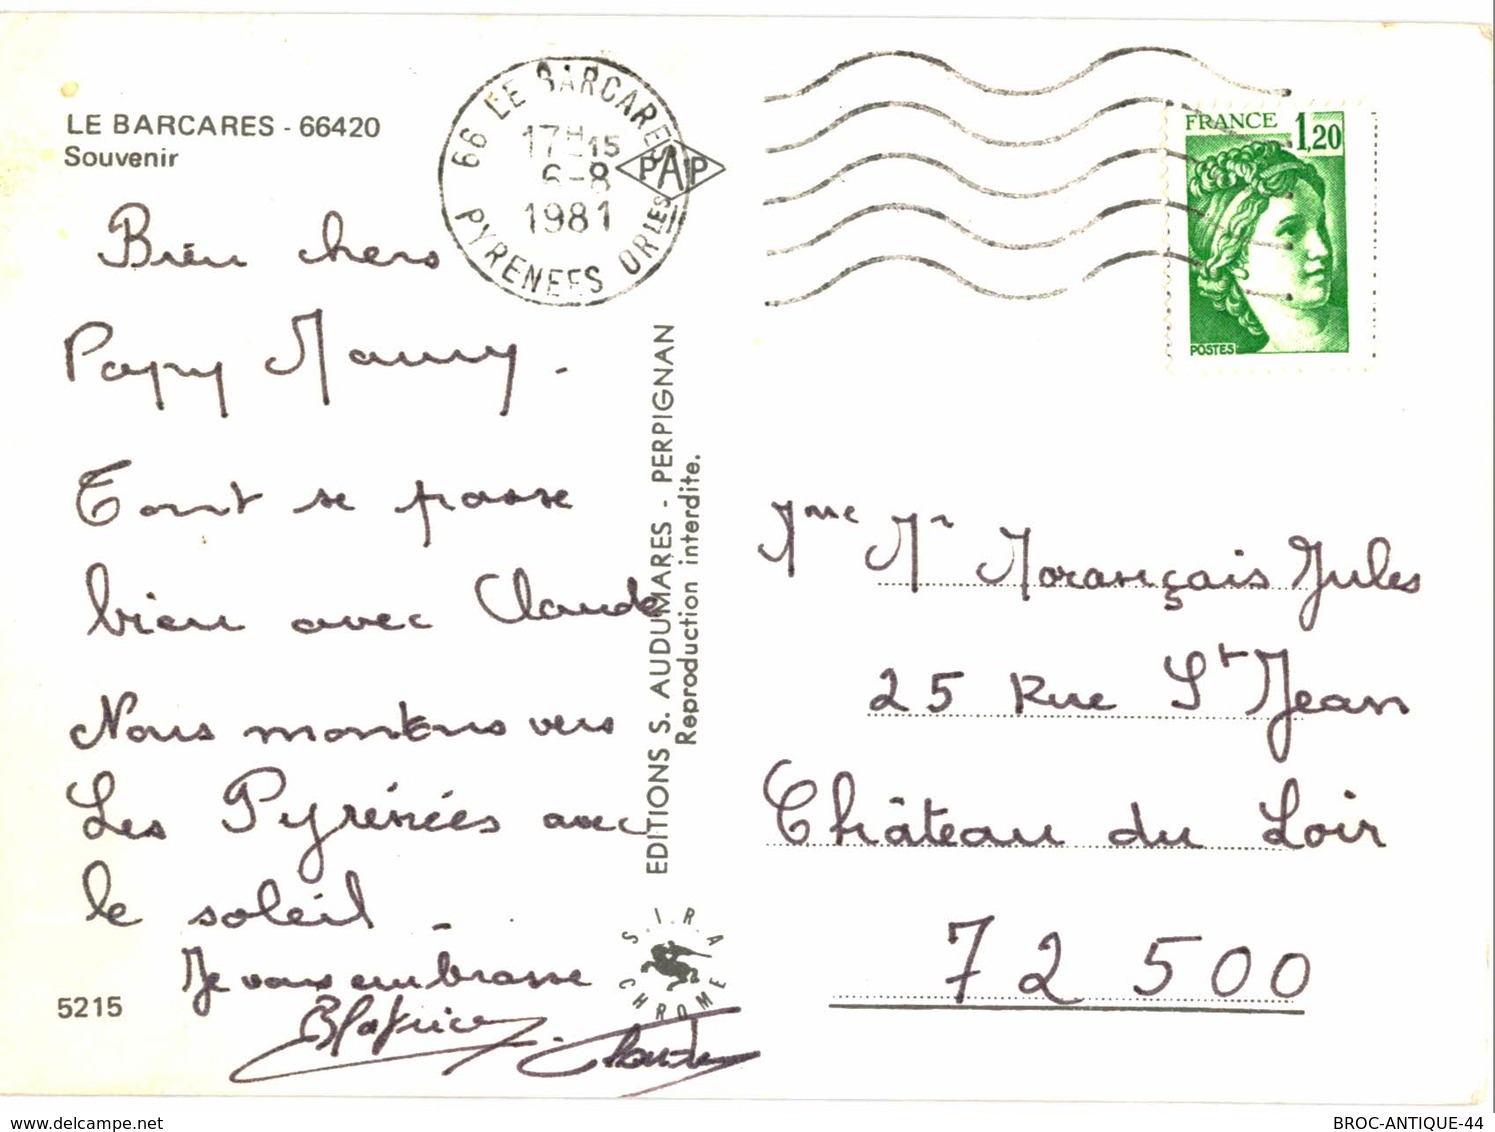 LE BARCARES - 66420
Souvenir
66 LE BARCARES
17H15
6-8
1981
PYRENEES ORIES
PAP
FRANCE 1,20
POSTES
Bien chers
Papy Mamy.
Tout se passe
bien avec Claude
Nous montons vers
Les Pyrénées avec
le soleil.
Je vous embrasse
Béatrice
Claude
5215
EDITIONS S. AUDUMARES - PERPIGNAN
Reproduction interdite.
S.I.R.A
CHROME
Mme Mr Morançais Jules
25 Rue St Jean
Château du Loir
72 500
delcampe.net
BROC-ANTIQUE-44